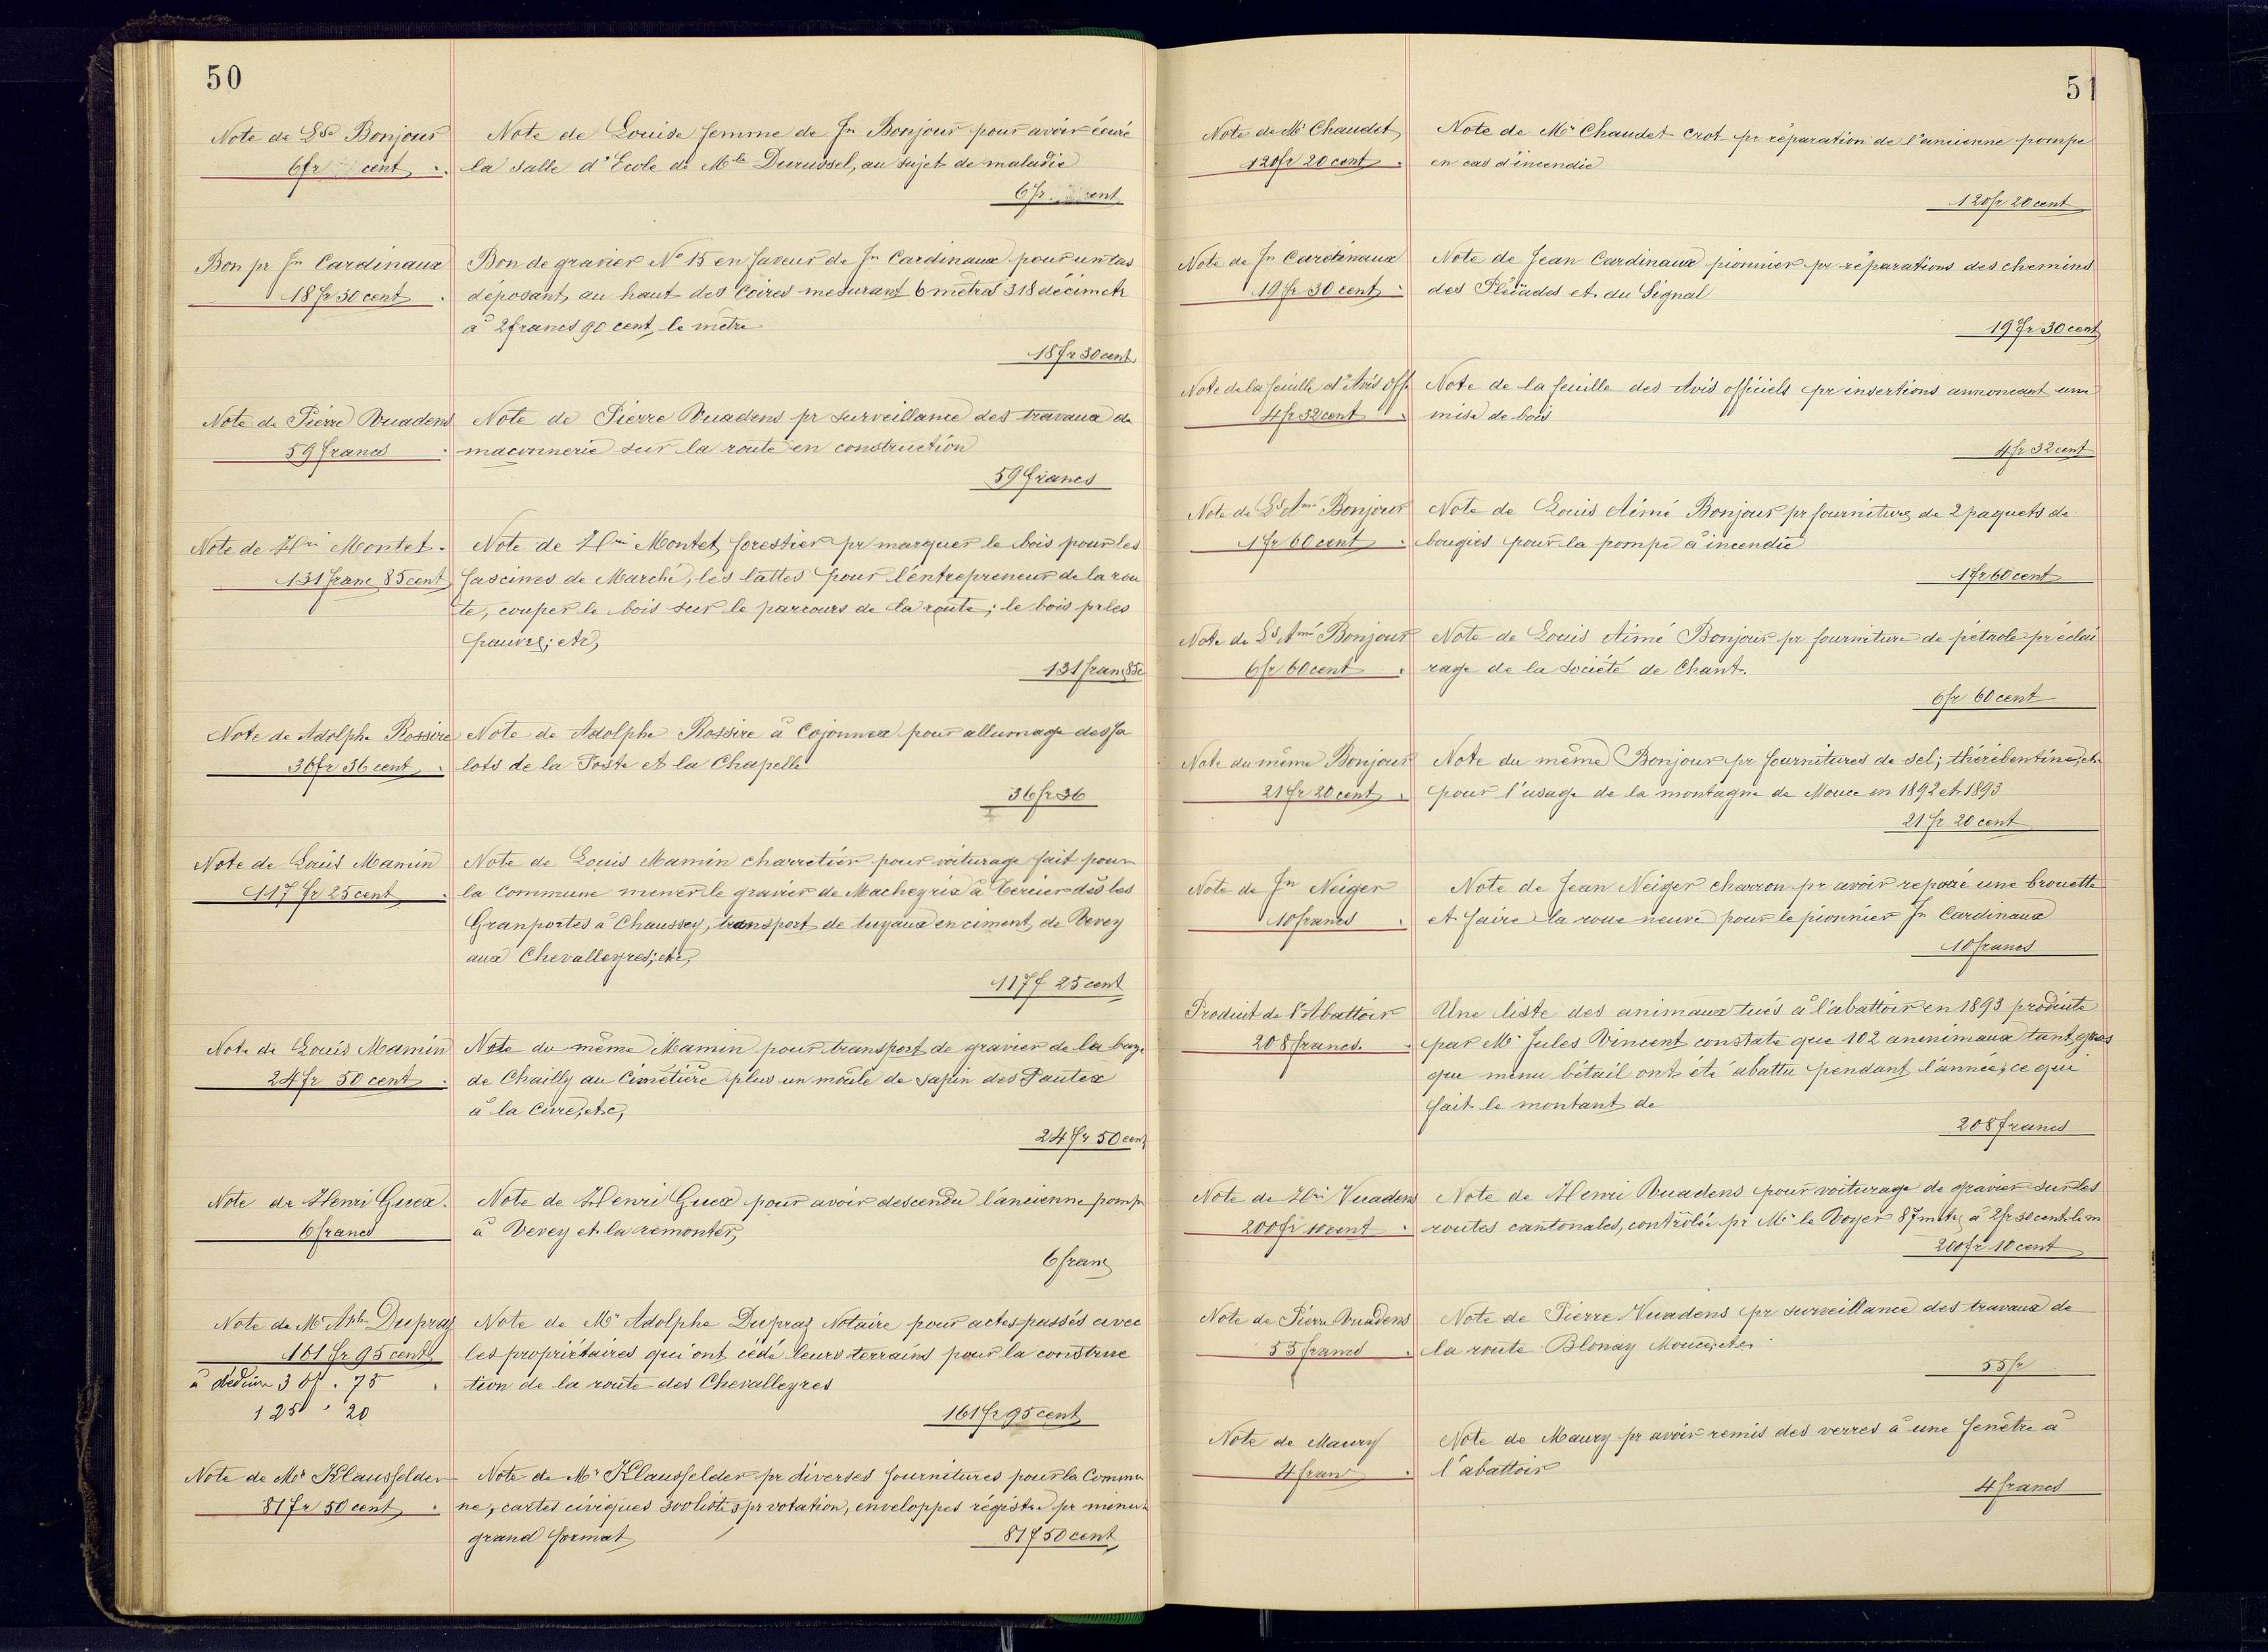 50
Note de Lse Bonjour
6 fr cent
Note de Louise femme de Jn Bonjour pour avoir écuré
la salle d'Ecole de Mlle Durussel, au sujet de maladie
6 fr. cent
Bon pr Jn Cardinaux
18 fr 30 cent
Bon de gravier No 15 en faveur de Jn Cardinaux pour un tas
déposant au haut des Coires mesurant 6 mètres 318 décimets
à 2 francs 90 cent, le mètre
18 fr 30 cent
Note de Pierre Vuadens
59 francs
Note de Pierre Vuadens pr surveillance des travaux de
maconnerie sur la route en construction
59 francs
Note de Hri Montet
131 franc 85 cent
Note de Hri Montet, forestier pr marquer le bois pour les
fascines de Marché, les lattes pour l'entrepreneur de la rou
te, couper le bois sur le parcours de la route; le bois pr les
pauvres; etc,
131 franc 85c
Note de Adolphe Rossire
36 fr 36 cent
Note de Adolphe Rossire à Cojonnex pour allumage des fa
lots de la Poste et la Chapelle
36 fr 36
Note de Louis Mamin
117 fr 25 cent
Note de Louis Mamin charretier pour voiturage fait pour
la Commune mener le gravier de Macheyrix à Tercier dès les
Granportes à Chaussey, transport de tuyaux en ciment, de Vevey
aux Chevalleyres; etc,
117 f 25 cent
Note de Louis Mamin
24 fr 50 cent
Note du même Mamin pour transport de gravier de la baye
de Chailly au Cimetière plus un moule de sapin des Pautex
à la Cure, etc,
24 fr 50 cent
Note de Henri Guex
6 francs
Note de Henri Guex pour avoir descendu l'ancienne pompe
à Vevey et la remonter,
6 franc
Note de Mr Aphe Dupraz
161 fr 95 cent
à déduire 36 f. 75
125 . 20
Note de Mr Adolphe Dupraz Notaire pour actes passés avec
les propriétaires qui ont cédé leurs terrains pour la construc
tion de la route des Chevalleyres
161 fr 95 cent
Note de Mr Klausfelder
81 fr 50 cent
Note de Mr Klausfelder pr diverses fournitures pour la Commu
ne, cartes civiques 300 listes pr votation, enveloppes régistre pr minute
grand format
81 f 50 cent
51
Note de Mr Chaudet
120 fr 20 cent
Note de Mr Chaudet Crot pr réparation de l'ancienne pompe
en cas d'incendie
120 fr 20 cent
Note de Jn Cardinaux
19 fr 30 cent
Note de Jean Cardinaux pionnier pr réparations des chemins
des Pléïades et du Signal
19 fr 30 cent
Note de la feuille d'Avis off.
4 fr 32 cent
Note de la feuille des Avis officiels pr insertions annoncant une
mise de bois
4 fr 32 cent
Note de Ls Amé Bonjour
1 fr 60 cent
Note de Louis Aimé Bonjour pr fourniture de 2 paquets de
bougies pour la pompe à incendie
1 fr 60 cent
Note de Ls Amé Bonjour
6 fr 60 cent
Note de Louis Aimé Bonjour pr fourniture de pétrole pr éclai
rage de la société de Chant.
6 fr 60 cent
Note du même Bonjour
21 fr 20 cent
Note du même Bonjour pr fournitures de sel; thérébentine, etc
pour l'usage de la montagne de Mouce en 1892 et 1893
21 fr 20 cent
Note de Jn Neiger
10 francs
Note de Jean Neiger charron pr avoir reparé une brouette
et faire la roue neuve pour le pionnier Jn Cardinaux
10 francs
Produit de l'Abattoir
208 francs.
Une liste des animaux tués à l'abattoir en 1893 produite
par Mr Jules Vincent constate que 102 aninimaux tant gros
que menu bétail ont été abattu pendant l'année, ce qui
fait le montant de
208 francs
Note de Hri Vuadens
200 fr 10 cent
Note de Henri Vuadens pour voiturage de gravier sur les
routes cantonales, contrôlée pr Mr le Voyer 87 mètres à 2 fr 30 cent le m
200 fr 10 cent
Note de Pierre Vuadens
55 francs
Note de Pierre Vuadens pr surveillance des travaux de
la route Blonay Mouce, etc.
55 fr
Note de Maury
4 franc
Note de Maury pr avoir remis des verres à une fenêtre à
l'abattoir
4 francs